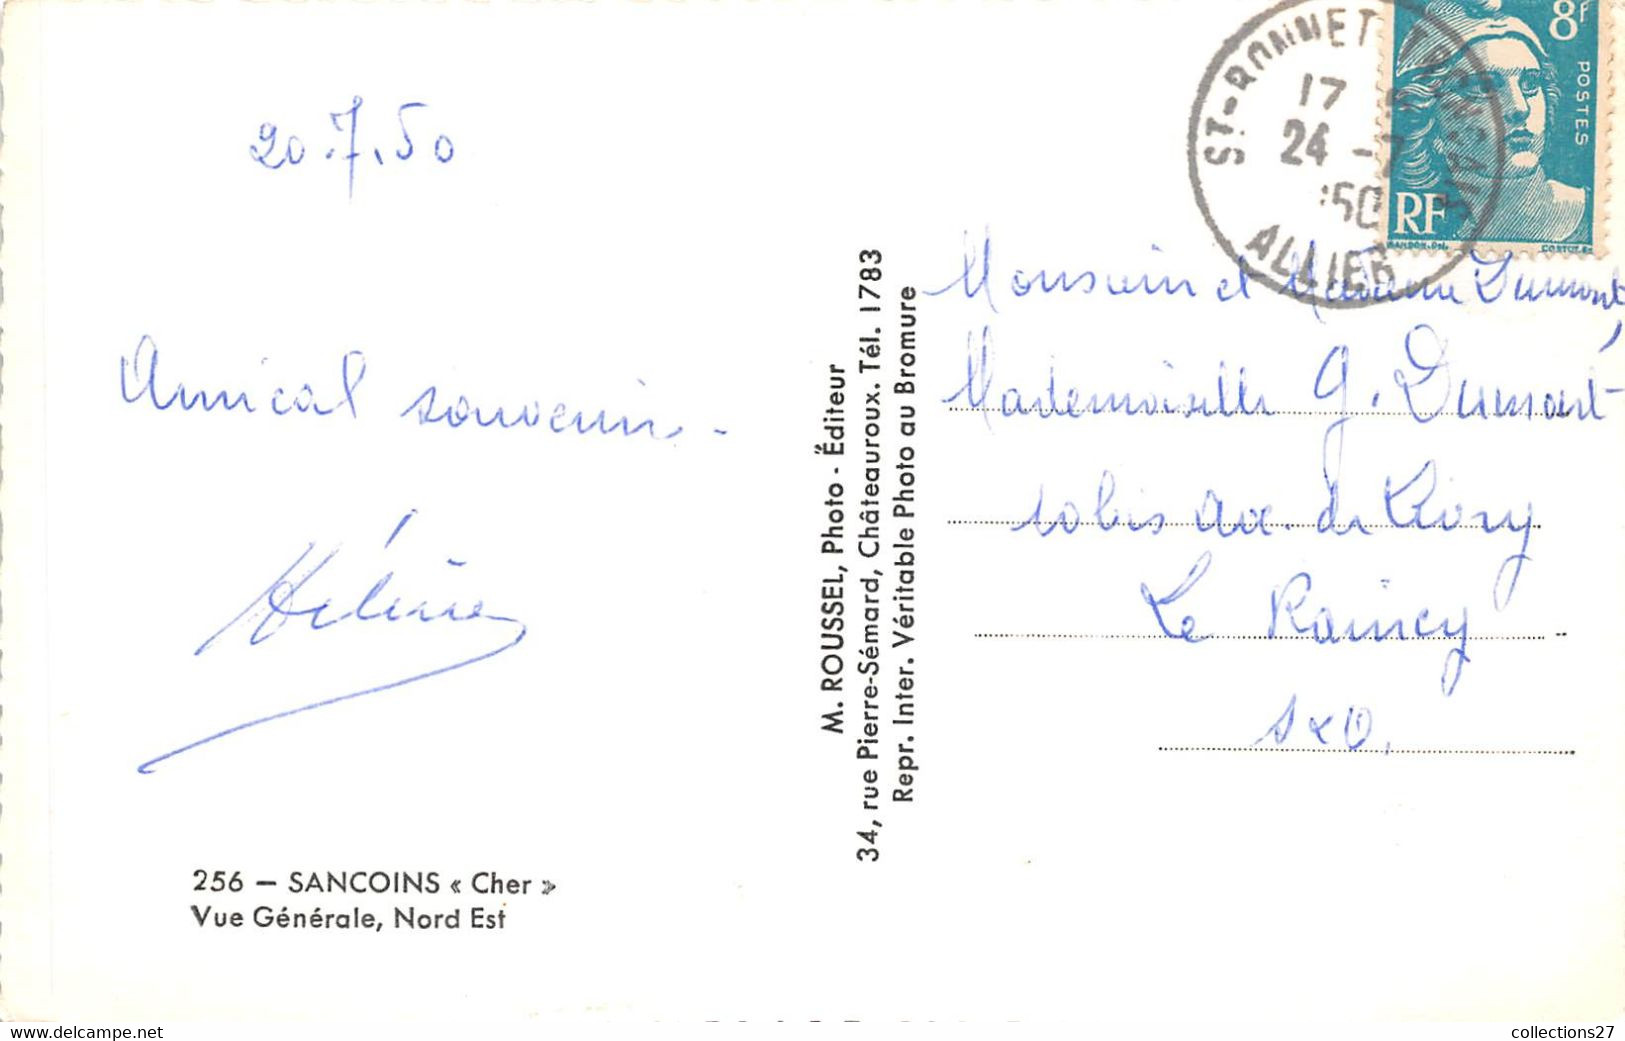 20.7.50
Amical souvenir.
Hélène
256 — SANCOINS « Cher »
Vue Générale, Nord Est
M. ROUSSEL, Photo - Éditeur
34, rue Pierre-Sémard, Châteauroux. Tél. 1783
Repr. Inter. Véritable Photo au Bromure
8F
POSTES
RF
ST-BONNET TRONÇAIS
17
24 -7
50
ALLIER
Monsieur et Madame Dumont,
Mademoiselle G. Dumont
10bis av. de Livry
Le Raincy
S&O.
collections27